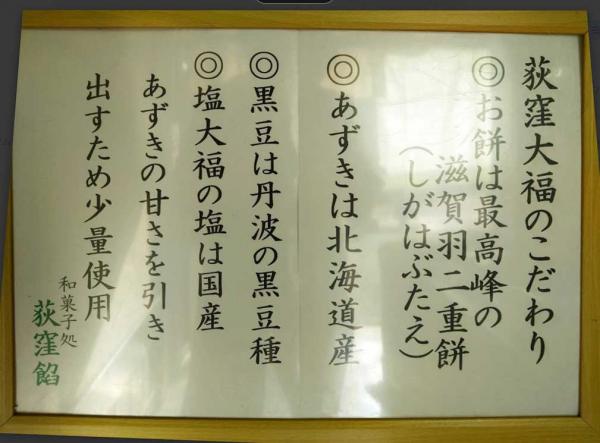 荻窪大福のこだわり
◎お餅は最高峰の
滋賀羽二重餅
(しがはぶたえ)
◎あずきは北海道産
◎黒豆は丹波の黒豆種
◎塩大福の塩は国産
あずきの甘さを引き
出すため少量使用
和菓子処
荻窪餡